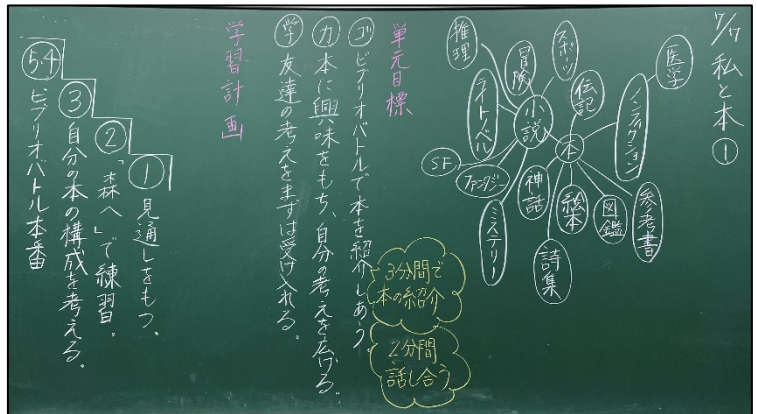 7/17 私と本①
医学
ノンフィクション
参考書
図鑑
絵本
詩集
神話
伝記
本
小説
スポーツ
冒険
推理
ライトノベル
SF
ファンタジー
ミステリー
単元目標
ゴ ビブリオバトルで本を紹介しあう。
力 本に興味をもち、自分の考えを広げる。
学 友達の考えをまずは受け入れる。
3分間で
本の紹介
2分間
話し合う
学習計画
① 見通しをもつ。
② 「森へ」で練習。
③ 自分の本の構成を考える。
5・4 ビブリオバトル本番